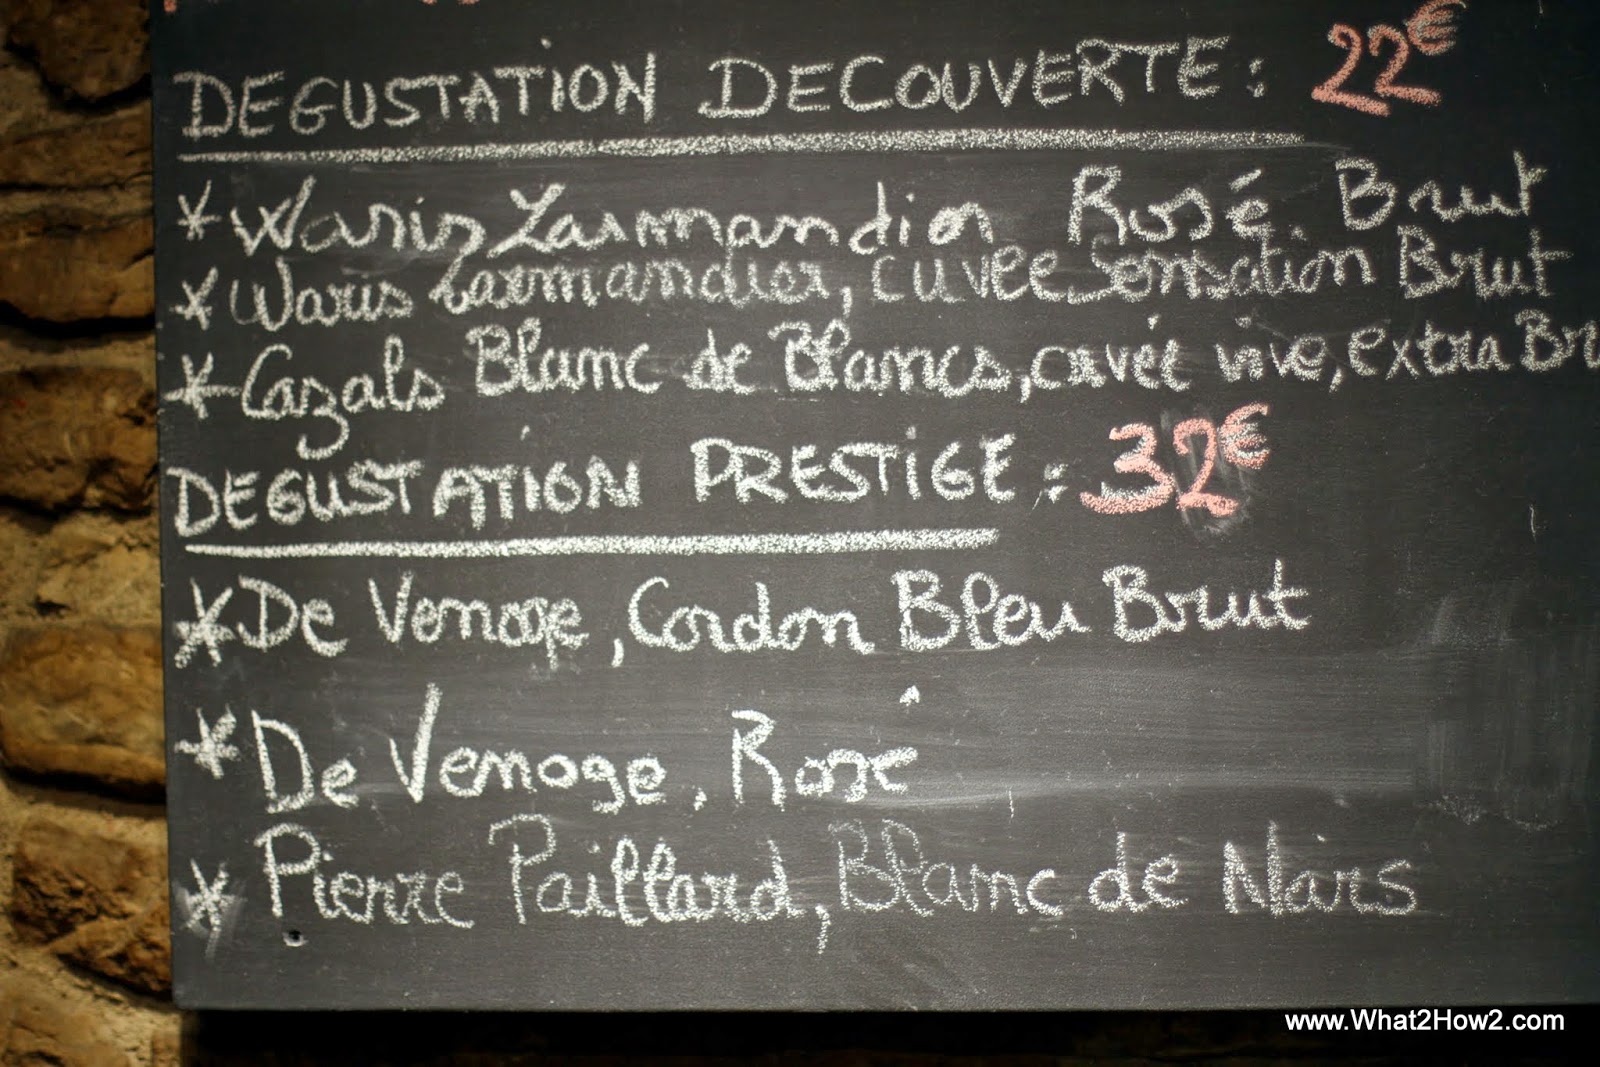 DEGUSTATION DECOUVERTE : 22€
* Waris Larmandier Rosé. Brut
* Waris Larmandier, cuvée Sensation Brut
* Cazals Blanc de Blancs, cuvée vive, extra Br
DEGUSTATION PRESTIGE : 32€
* De Venoge, Cordon Bleu Brut
* De Venoge, Rosé
* Pierre Paillard, Blanc de Noirs
www.What2How2.com